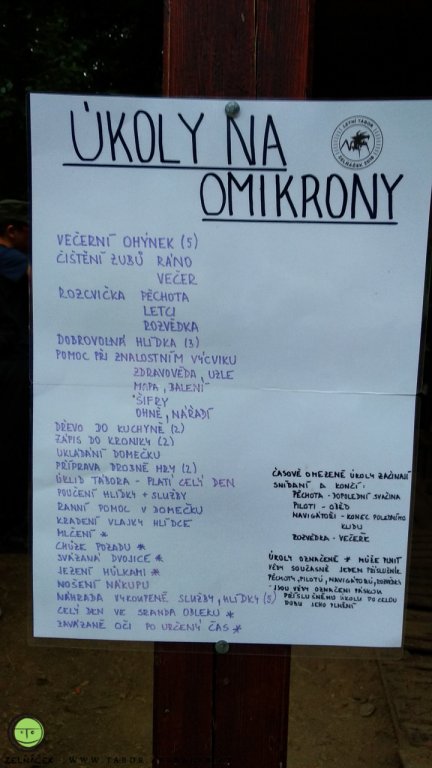 ÚKOLY NA
OMIKRONY
LETNÍ TÁBOR
VEČERNÍ OHÝNEK (5)
ČIŠTĚNÍ ZUBŮ RÁNO
VEČER
ROZCVIČKA PĚCHOTA
LETCI
ROZVĚDKA
DOBROVOLNÁ HLÍDKA (3)
POMOC PŘI ZNALOSTNÍM VÝCVIKU
ZDRAVOVĚDA, UZLE
MAPA, BALENÍ
ŠIFRY
OHNĚ, NÁŘADÍ
DŘEVO DO KUCHYNĚ (2)
ZÁPIS DO KRONIKY (2)
UKLÁDÁNÍ DOMEČKU
PŘÍPRAVA DROBNÉ HRY (2)
ÚKLID TÁBORA - PLATÍ CELÝ DEN
POUČENÍ HLÍDKY + SLUŽBY
RANNÍ POMOC V DOMEČKU
KRADENÍ VLAJKY HLÍDCE
MLČENÍ *
CHŮZE POZADU *
SVÁZANÁ DVOJICE *
JEZENÍ HŮLKAMI *
NOŠENÍ NÁKUPU
NÁHRADA VYKOUPENÉ SLUŽBY, HLÍDKY (5)
CELÝ DEN VE SRANDA OBLEKU *
ZAVÁZANÉ OČI PO URČENÝ ČAS *
ČASOVĚ OMEZENÉ ÚKOLY ZAČÍNAJÍ
SNÍDANÍ A KONČÍ:
PĚCHOTA - DOPOLEDNÍ SVAČINA
PILOTI - OBĚD
NAVIGÁTOŘI - KONEC POLEDNÍHO
KLIDU
ROZVĚDKA - VEČEŘE
ÚKOLY OZNAČENÉ * MŮŽE PLNIT
VŽDY SOUČASNĚ JEDEN PŘÍSLUŠNÍK
PĚCHOTY, PILOTŮ, NAVIGÁTORŮ, ROZVĚDKY
JSOU VŽDY OZNAČENI PÁSKOU
PŘÍSLUŠNÉHO ÚKOLU PO CELOU
DOBU JEHO PLNĚNÍ
ZELŇÁČEK